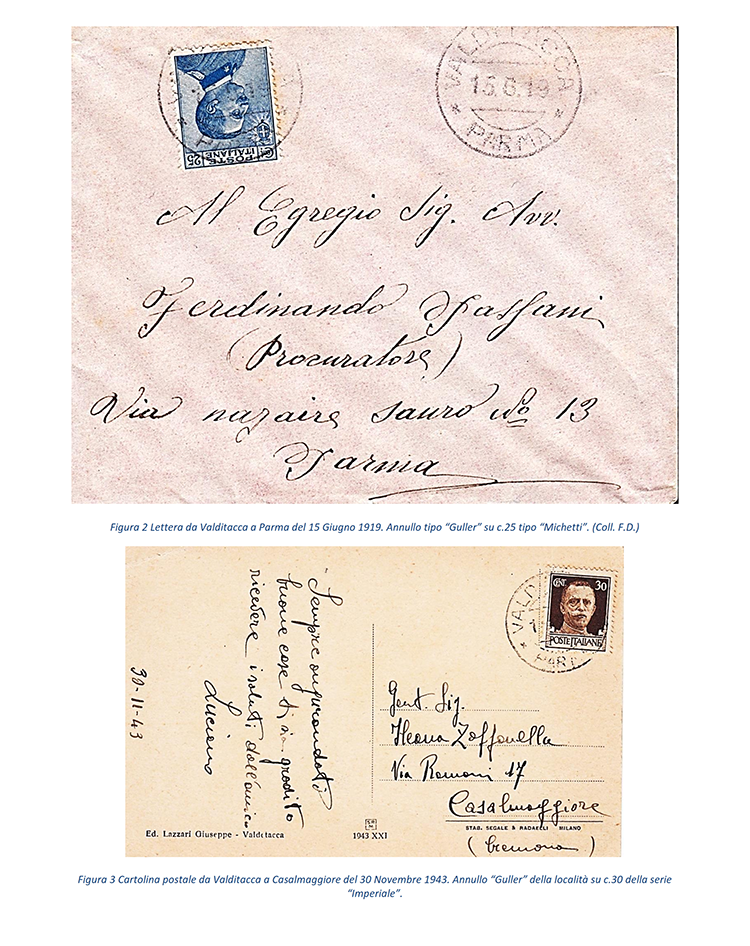 VALDITACCA
15.6.19
PARMA
POSTE
ITALIANE
Ct. 25
Al Egregio Sig. Avv.
Ferdinando Passani
(Procuratore)
Via nazaire Sauro No 13
Parma
Figura 2 Lettera da Valditacca a Parma del 15 Giugno 1919. Annullo tipo “Guller” su c.25 tipo “Michetti”. (Coll. F.D.)
Sempre augurandoti
buone cose ti sia gradito
ricevere i saluti dall'amico
Luciano
30-11-43
Ed. Lazzari Giuseppe - Valditacca
1943 XXI
CENT. 30
POSTE ITALIANE
VALDI
PAR
Gent. Sig.
Ileana Zaffanella
Via Romani 17
Casalmaggiore
STAB. SEGALE & RADAELLI MILANO
(Cremona)
Figura 3 Cartolina postale da Valditacca a Casalmaggiore del 30 Novembre 1943. Annullo “Guller” della località su c.30 della serie
“Imperiale”.